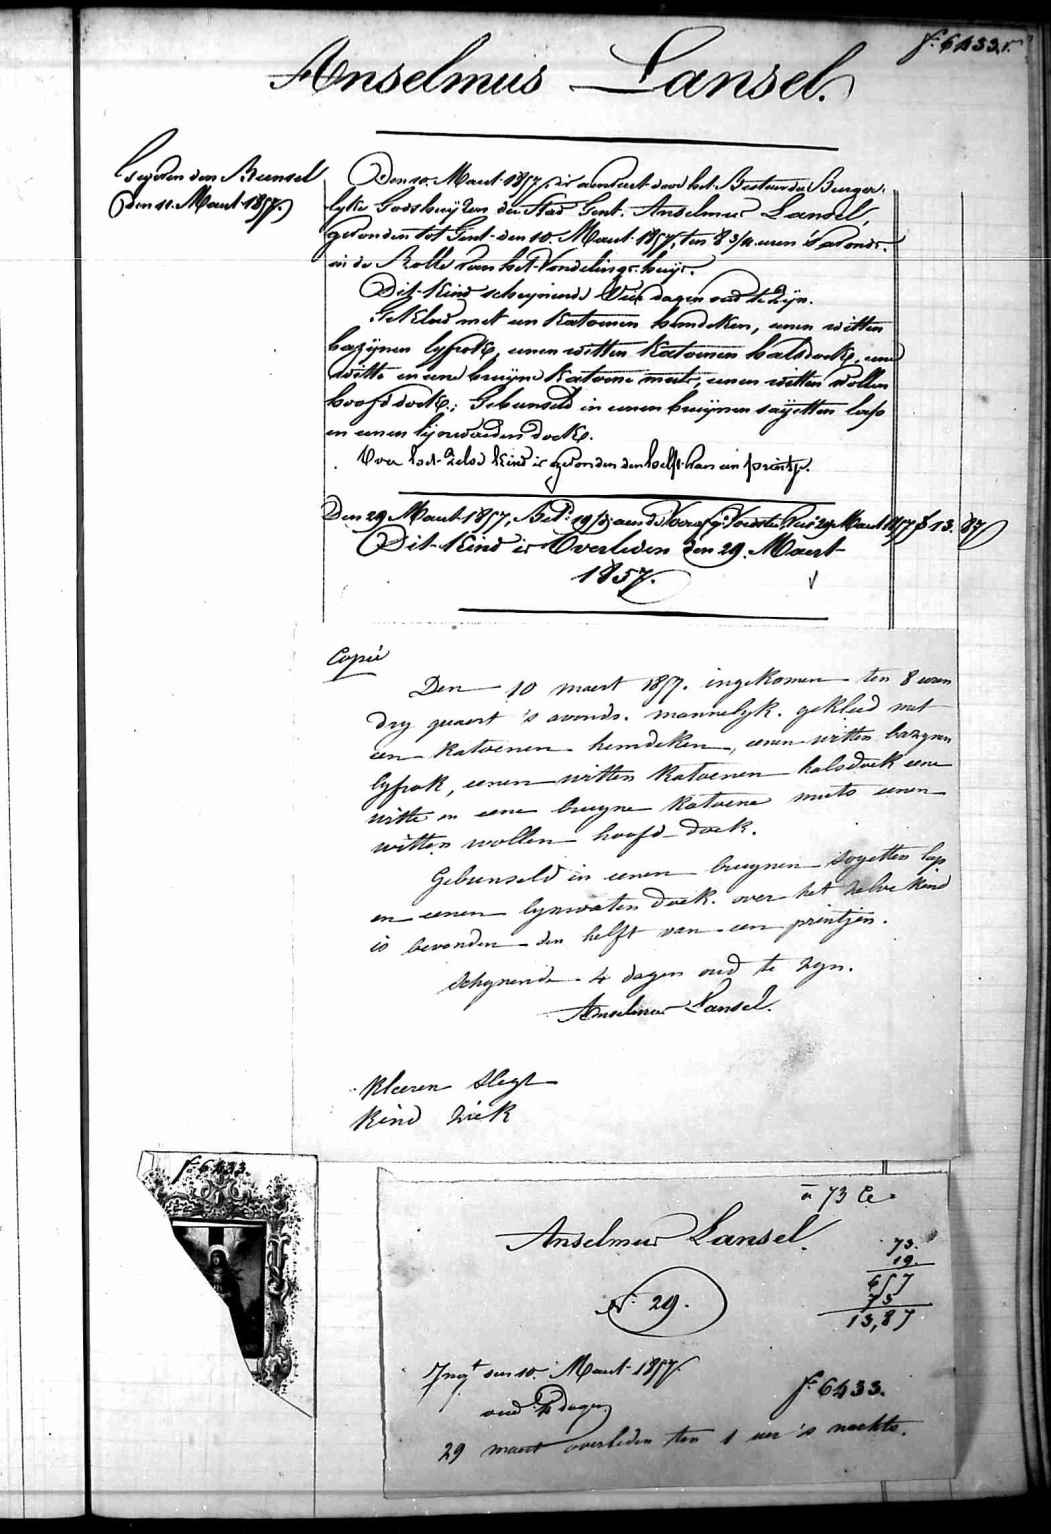 f.° 6433.
Anselmus Lansel.
den 11. Maart 1857.
Den 10. Maart 1857, is aenveert door het Bestuur der Burger-
lyke Godshuyzen der Stad Gent. Anselmus Lansel
gevonden tot Gent den 10. Maart 1857, ten 8 3/4 uren 's avonds.
in de Rolle van het Vondelingshuys.
Dit kind schynende Vier dagen oud te Zijn.
Gekleed met een Katoenen hemdeken, eenen witten
bazijnen lyfrok, eenen witten katoenen halsdoek, eene
witte en eene bruyne katoene muts, eenen witten wollen
hoofddoek; Gebunseld in eenen bruynen sayetten lap
en eenen lijnwaeden doek.
Over het Zelve Kind is gevonden den helft van een printje.
Den 29 Maart 1857, 29 Maart 1857 f 13. 87
Dit Kind is Overleden den 29. Maert
1857.
Copie
Den 10 maert 1857. ingekomen ten 8 uren
dry quaert 's avonds. mannelyk. gekleed met
een katoenen hemdeken, eenen witten bazynen
lyfrok, eenen witten katoenen halsdoek eene
witte en eene bruyne katoene muts eenen
witten wollen hoofd doek.
Gebunseld in eenen bruynen sayetten lap
en eenen lynwaten doek. over het zelve kind
is bevonden den helft van een printjen.
schynende 4 dagen oud te zyn.
Anselmus Lansel.
kleeren slegt
kind ziek
f.° 6433.
a 73 Ce
Anselmus Lansel.
73.
19.
657
73
13,87
N.° 29.
den 10. Maart 1857
oud 4 dagen
f.° 6433.
29 maert overleden ten 1 uer 's nachts.